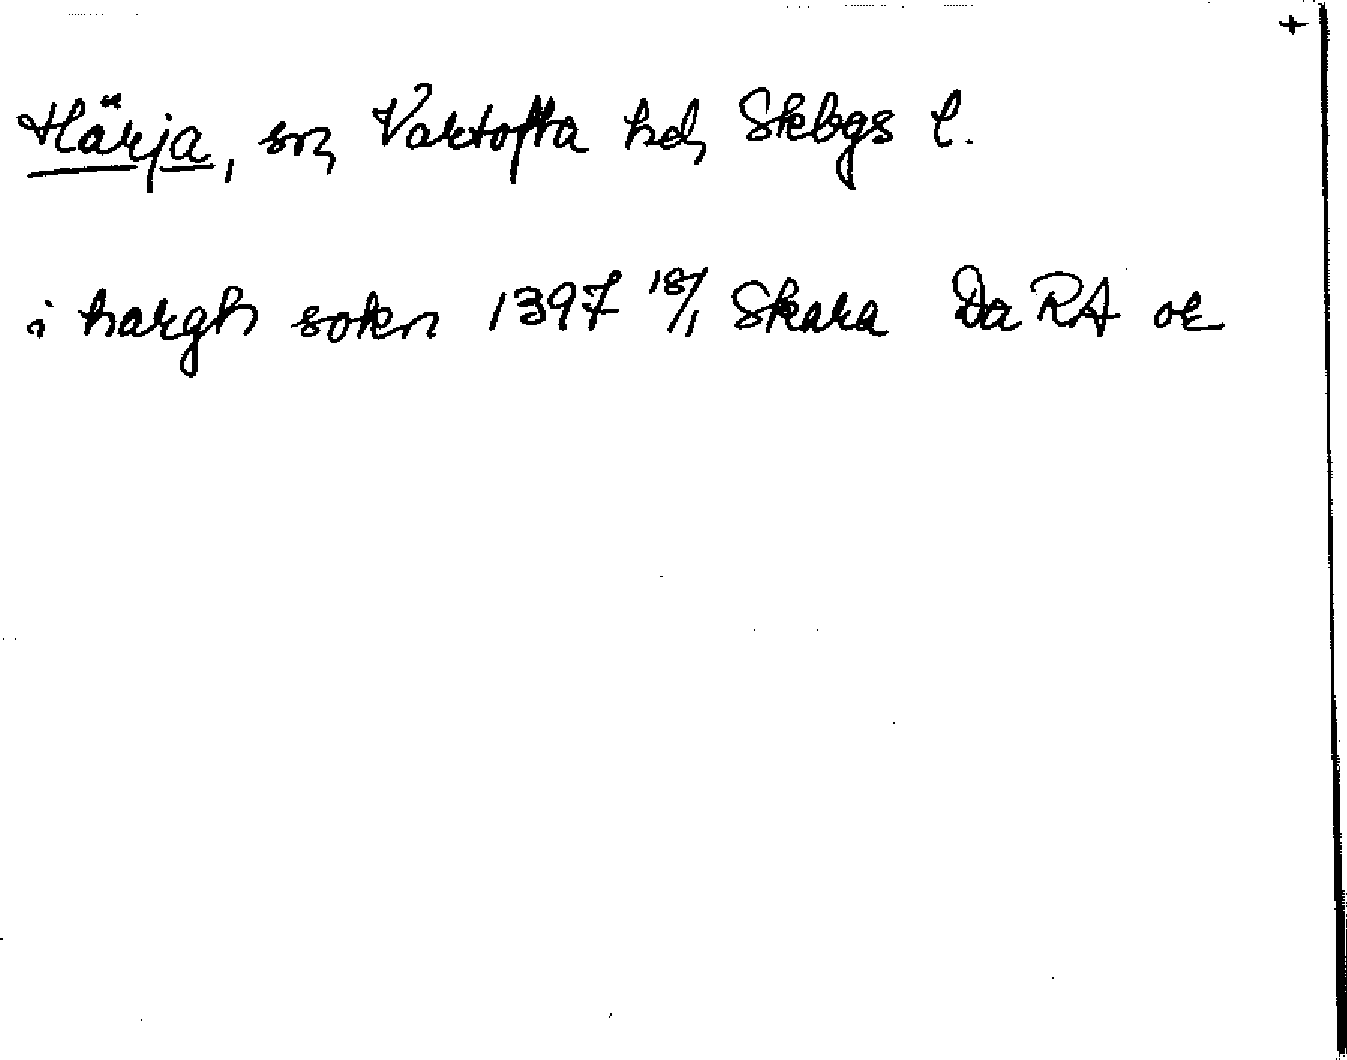 +
Härja, sn, Vartofta hd, Skbgs l.
i hargh sokn 1397 18/1 Skara Da RA or